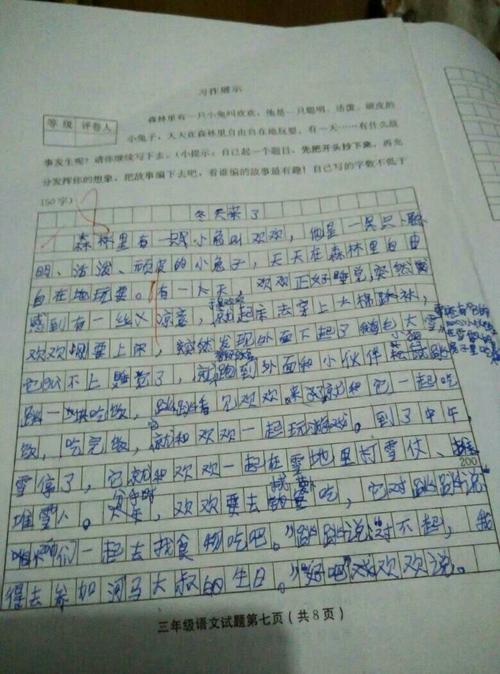 习作展示
等级 评卷人
森林里有一只小兔叫欢欢,他是一只聪明、活泼、顽皮的
小兔子,天天在森林里自由自在地玩耍。有一天……有什么故
事发生呢?请你继续写下去。(小提示:自己起一个题目,先把开头抄下来,再充
分发挥你的想象,把故事编下去吧,看谁编的故事最有趣!自己写的字数不低于
150字)
冬天来了
森林里有一只小兔叫欢欢,他是一只只聪
明、活泼、顽皮的小兔子,天天在森林里自由
自在地玩耍。有一天,欢欢正好睡觉,突然
感到有一丝凉意,就起床去穿上大棉
欢欢刚要上床,突然发现外面下起了大雪,
也不上睡觉了,就跑到外面和小伙伴
跳一块吃饭,跳跳看见欢欢来了就和它一起吃
饭,吃完饭,就和欢欢一起玩游戏。到了中午,
雪停了,它就和欢欢一起在雪地里打雪仗、
堆雪人。欢欢要去吃,它对跳跳说
咱们一起去找食物吃吧。"跳跳说:对不起,我
得去参加河马大叔的生日。"好吧"欢欢说。
200
三年级语文试题第七页(共8页)